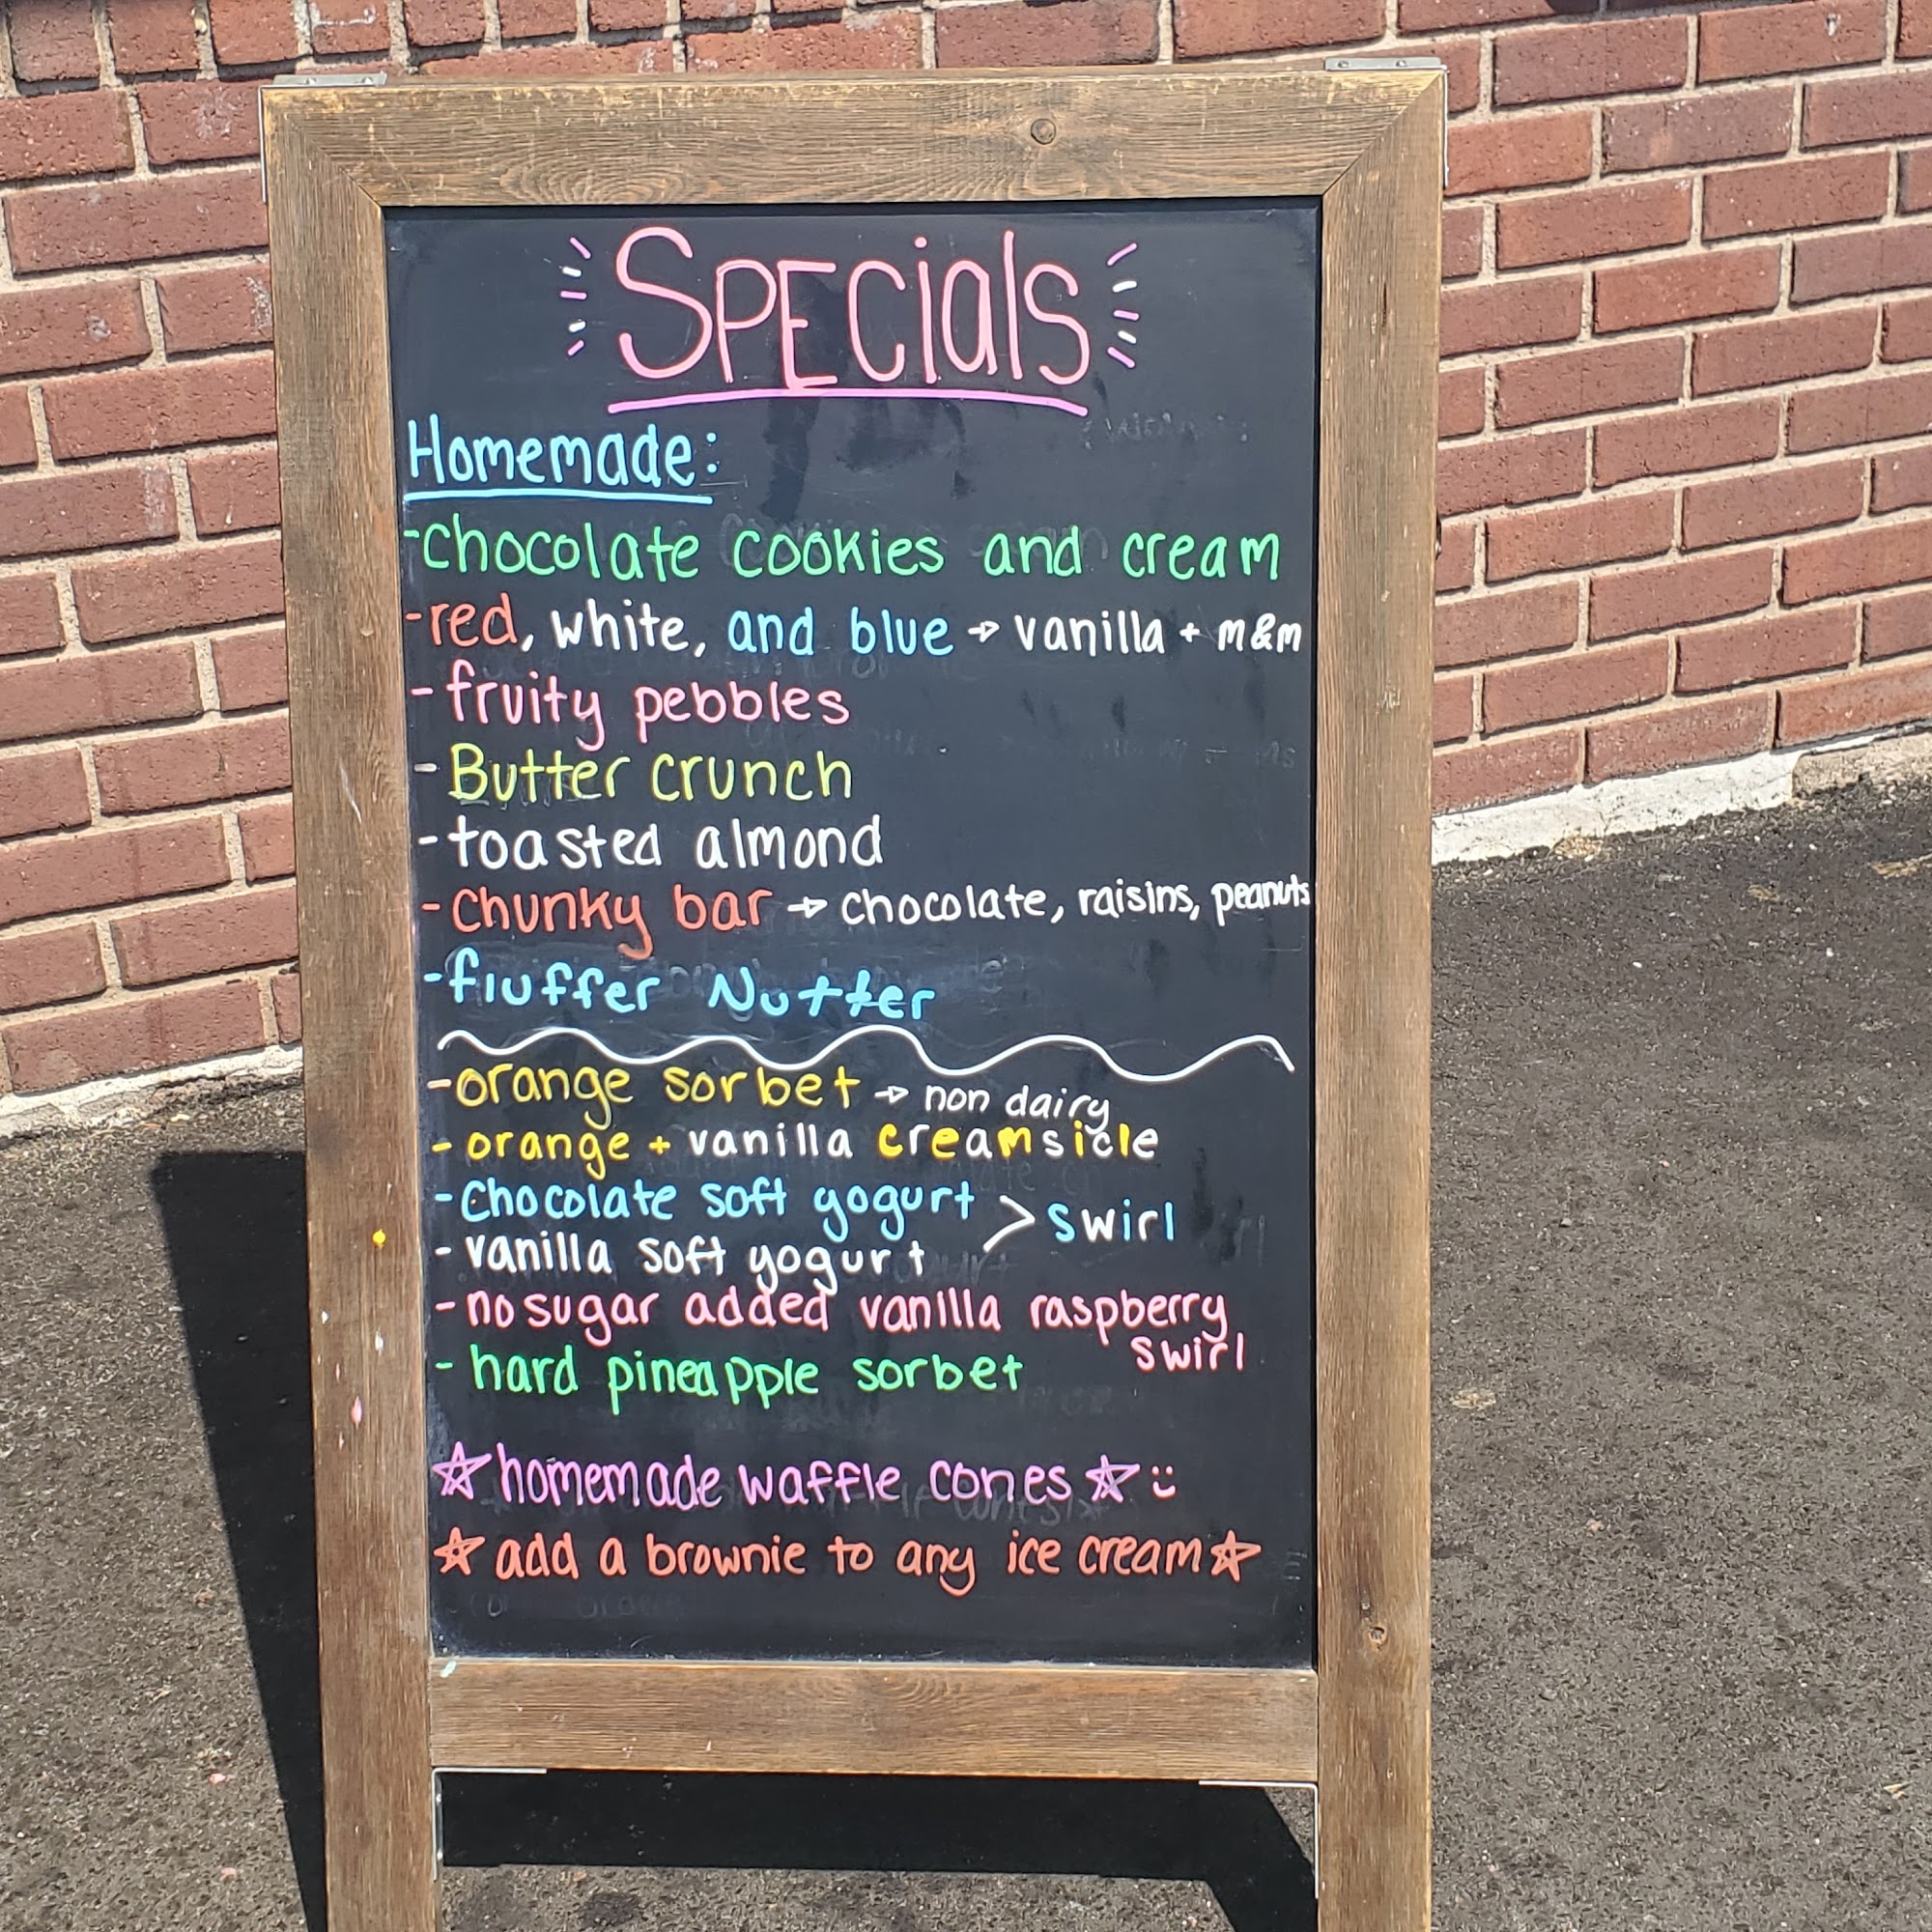 SPECials
Homemade:
-chocolate cookies and cream
-red, white, and blue → vanilla + m&m
- fruity pebbles
- Butter crunch
- toasted almond
- chunky bar → chocolate, raisins, peanuts
- fluffer Nutter
- orange sorbet → non dairy
- orange + vanilla creamsicle
- chocolate soft yogurt
> swirl
- vanilla soft yogurt
- no sugar added vanilla raspberry
swirl
- hard pineapple sorbet
☆ homemade waffle cones ☆ :)
☆ add a brownie to any ice cream ☆